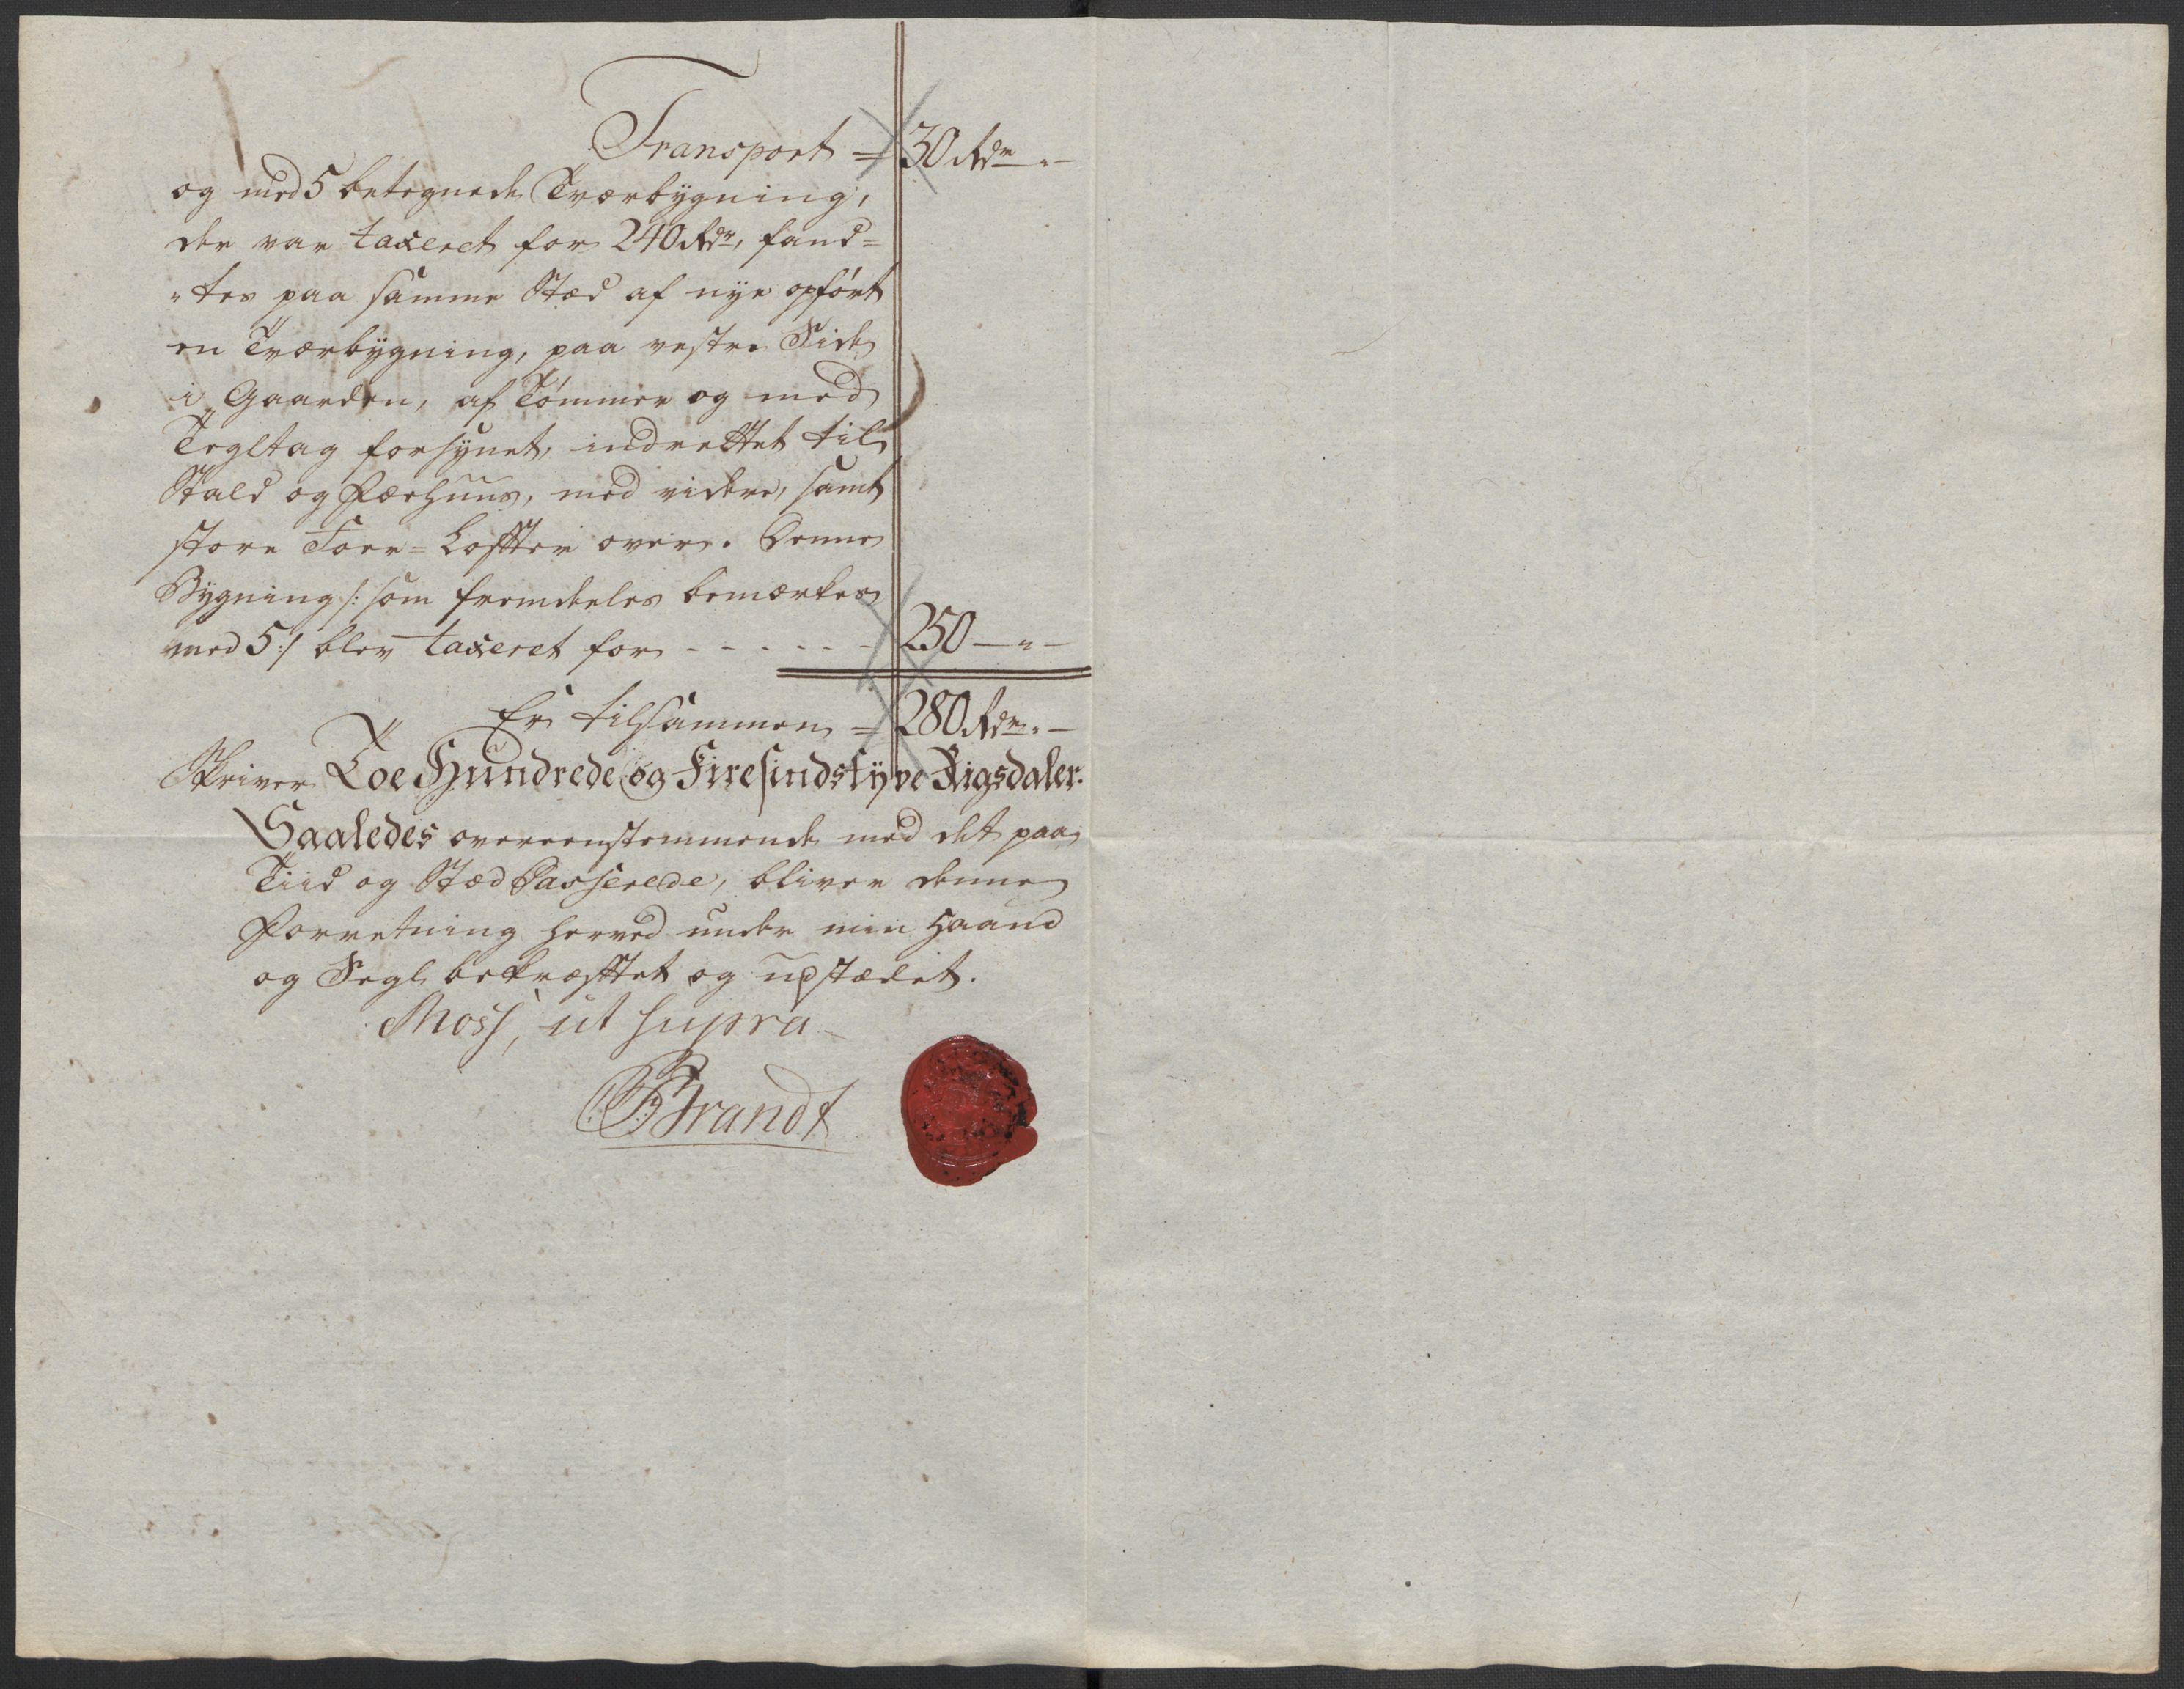 Transport = 30 Rdr "-
og med 5 betegnede Tværbygning,
der var taxeret for 240 Rdr, fand=
"tes paa samme Stæd af nye opført
en Tværbygning, paa vestre Side
i Gaarden, af Tømmer og med
Tegltag forsynet, indrettet til
Stald og Fæehuus, med videre, samt
store Foer=Loffter over. Denne
Bygning /: som fremdeeles bemærkes
med 5 :/ blev taxeret for - - - - - - 250 - " -
Er tilsammen = 280 Rdr " -
Skriver Toe Hundrede og Firesindstyve Rigsdaler.
Saaledes overeenstemmende med det paa
Tiid og Stæd Passerede, bliver denne
Forretning herved under min Haand
og Segl bekræfftet og udstædet.
Moss, ut supra
Brandt